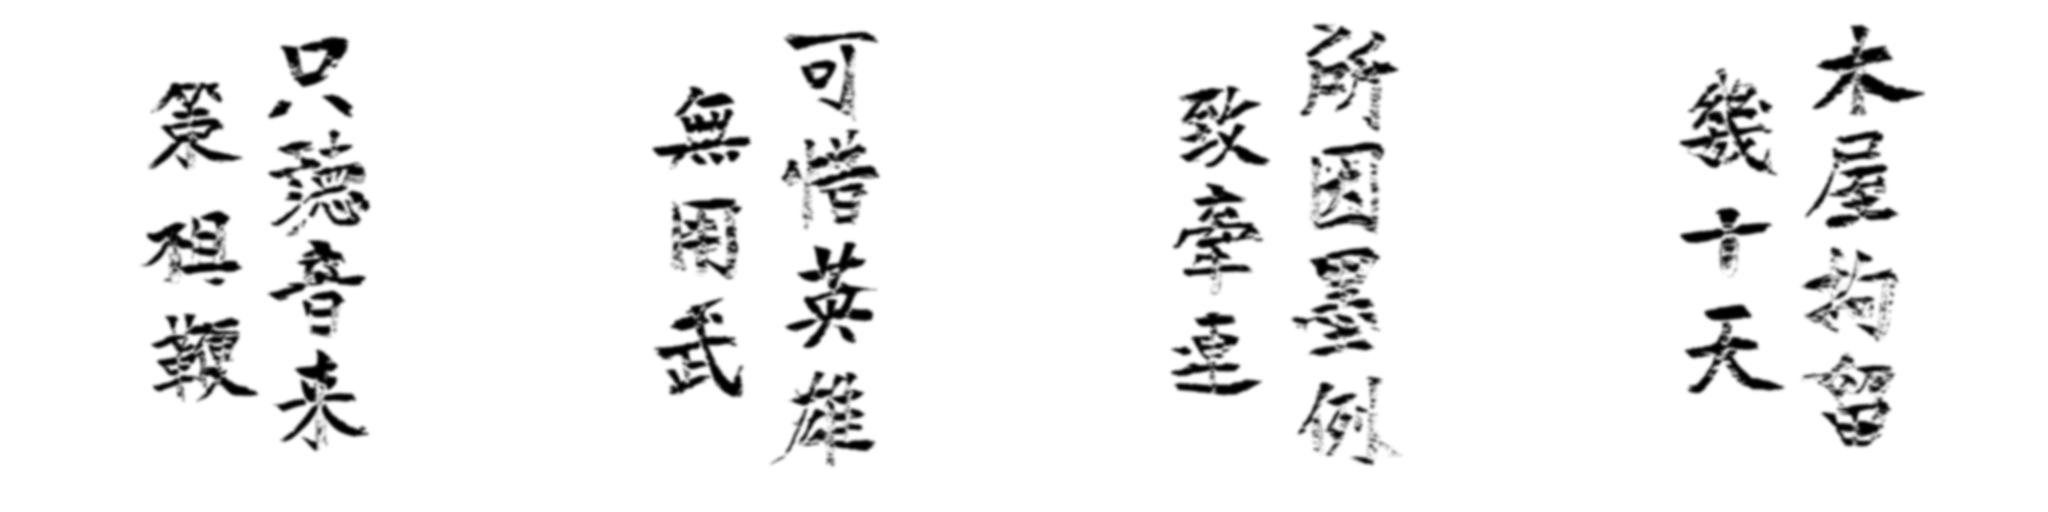 木屋拘留
幾十天
所因墨例
致牽連
可惜英雄
無用武
只聽音来
策祖鞭